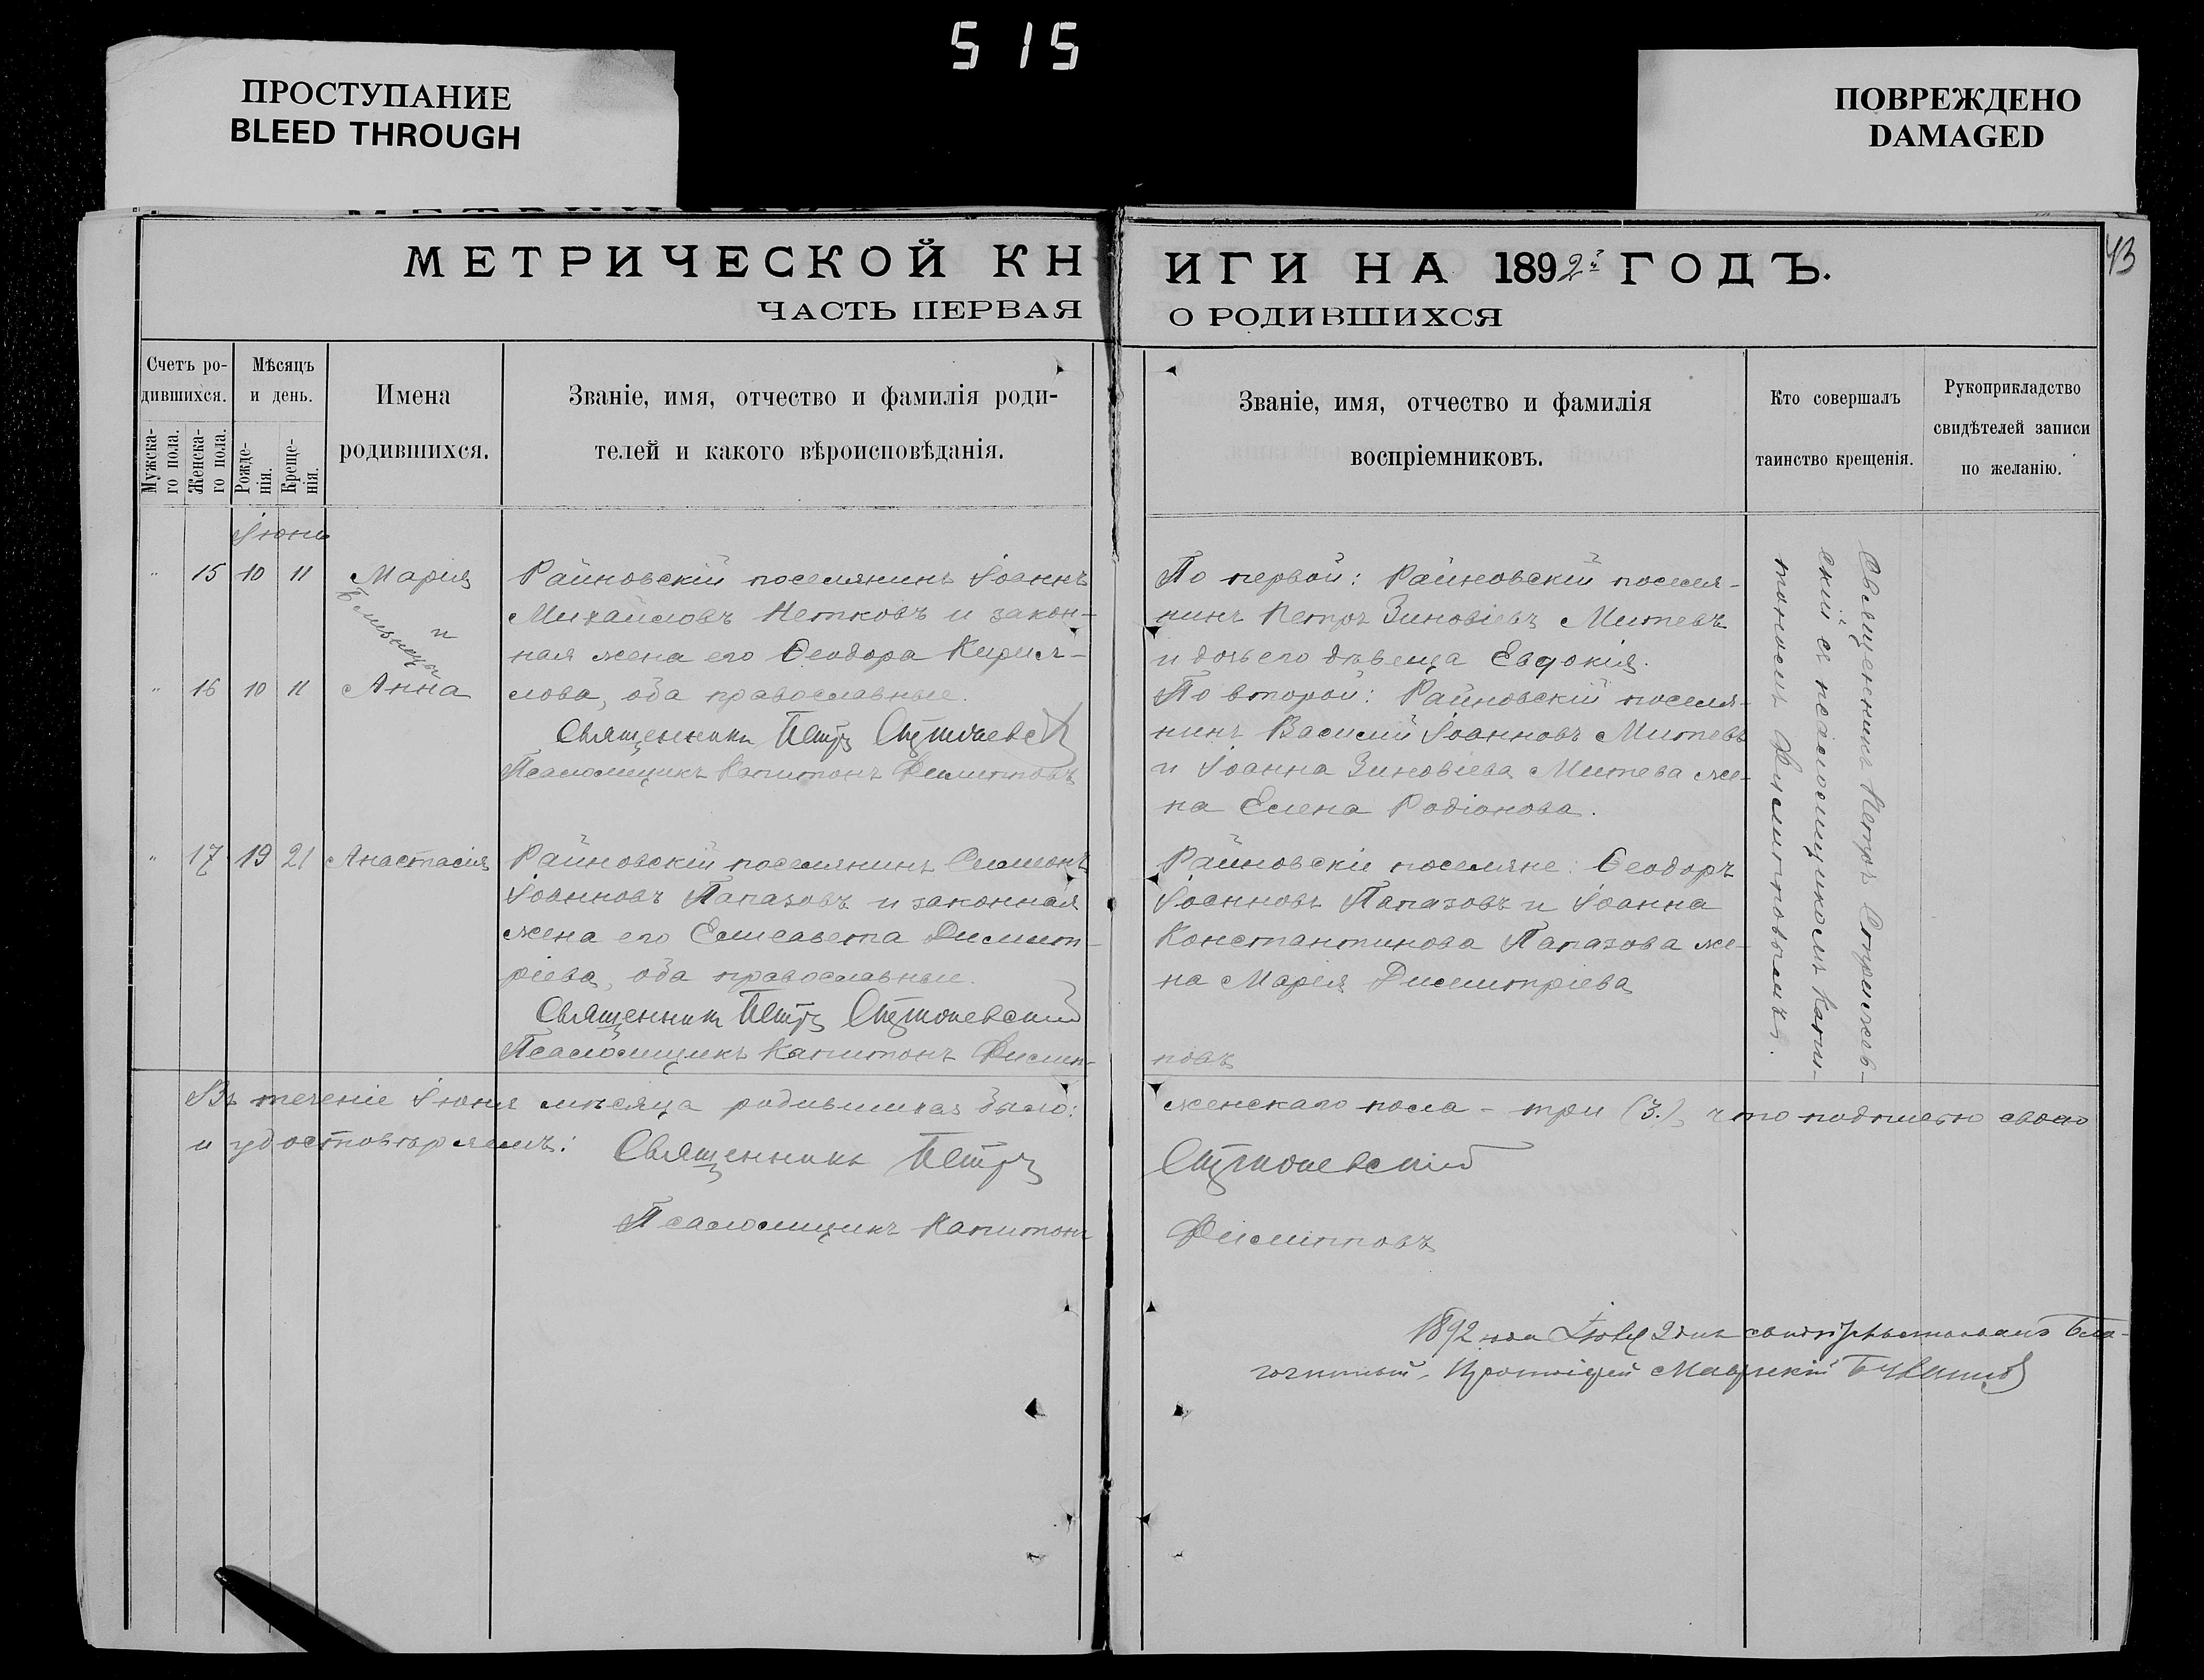 515
ПРОСТУПАНИЕ
BLEED THROUGH
ПОВРЕЖДЕНО
DAMAGED
МЕТРИЧЕСКОЙ КНИГИ НА 1892й ГОДЪ.
43
ЧАСТЬ ПЕРВАЯ О РОДИВШИХСЯ
Счетъ ро-
дившихся.
Мужска-
го пола.
Женска-
го пола.
Мѣсяцъ
и день.
Рожде-
нія.
Креще-
нія.
Имена
родившихся.
Званіе, имя, отчество и фамилія роди-
телей и какого вѣроисповѣданія.
Званіе, имя, отчество и фамилія
воспріемниковъ.
Кто совершалъ
таинство крещенія.
Рукоприкладство
свидѣтелей записи
по желанію.
Іюнь
" 15 10 11 Марія
и
Близнецы
" 16 10 11 Анна
Райновскій поселянинъ Іоаннъ
Михайловъ Нетковъ и закон-
ная жена его Ѳеодора Кирил-
лова, оба православные.
Священникъ Петръ
Псаломщикъ Капитонъ Филипповъ
По первой: Райновскій поселя-
нинъ Петръ Зиновіевъ Митевъ
и дочь его дѣвица Евдокія.
По второй: Райновскій поселя-
нинъ Василий Іоанновъ Митевъ
и Іоанна Зиновіева Митева же-
на Елена Родіонова.
" 17 19 21 Анастасія
Райновскій поселянинъ Симеонъ
Іоанновъ Папазовъ и законная
жена его Елисавета Димит-
ріева, оба православные.
Священникъ Петръ
Псаломщикъ Капитонъ Филип-
повъ
Райновскіе поселяне: Ѳеодоръ
Іоанновъ Папазовъ и Іоанна
Константинова Папазова же-
на Марія Димитріева
Священникъ Петръ
скій съ псаломщикомъ Капи-
тономъ Филипповымъ.
Въ теченіе Іюня мѣсяца родившихся было: женскаго пола - три (3.), что подписью своею
и удостовѣряемъ: Священникъ Петръ
Псаломщикъ Капитонъ Филипповъ
1892 года Іюля 2 дня свидѣтельствовалъ Бла-
гочинный, Протоіерей